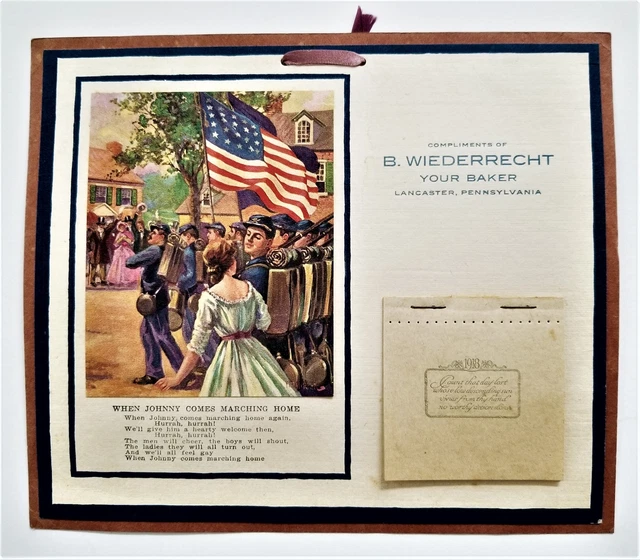 COMPLIMENTS OF
B. WIEDERRECHT
YOUR BAKER
LANCASTER, PENNSYLVANIA
WHEN JOHNNY COMES MARCHING HOME
When Johnny comes marching home again,
Hurrah, hurrah!
We'll give him a hearty welcome then,
Hurrah, hurrah!
The men will cheer, the boys will shout,
The ladies they will all turn out,
And we'll all feel gay
When Johnny comes marching home
Count that day lost
whose low descending sun
from thy hand
no worthy action done